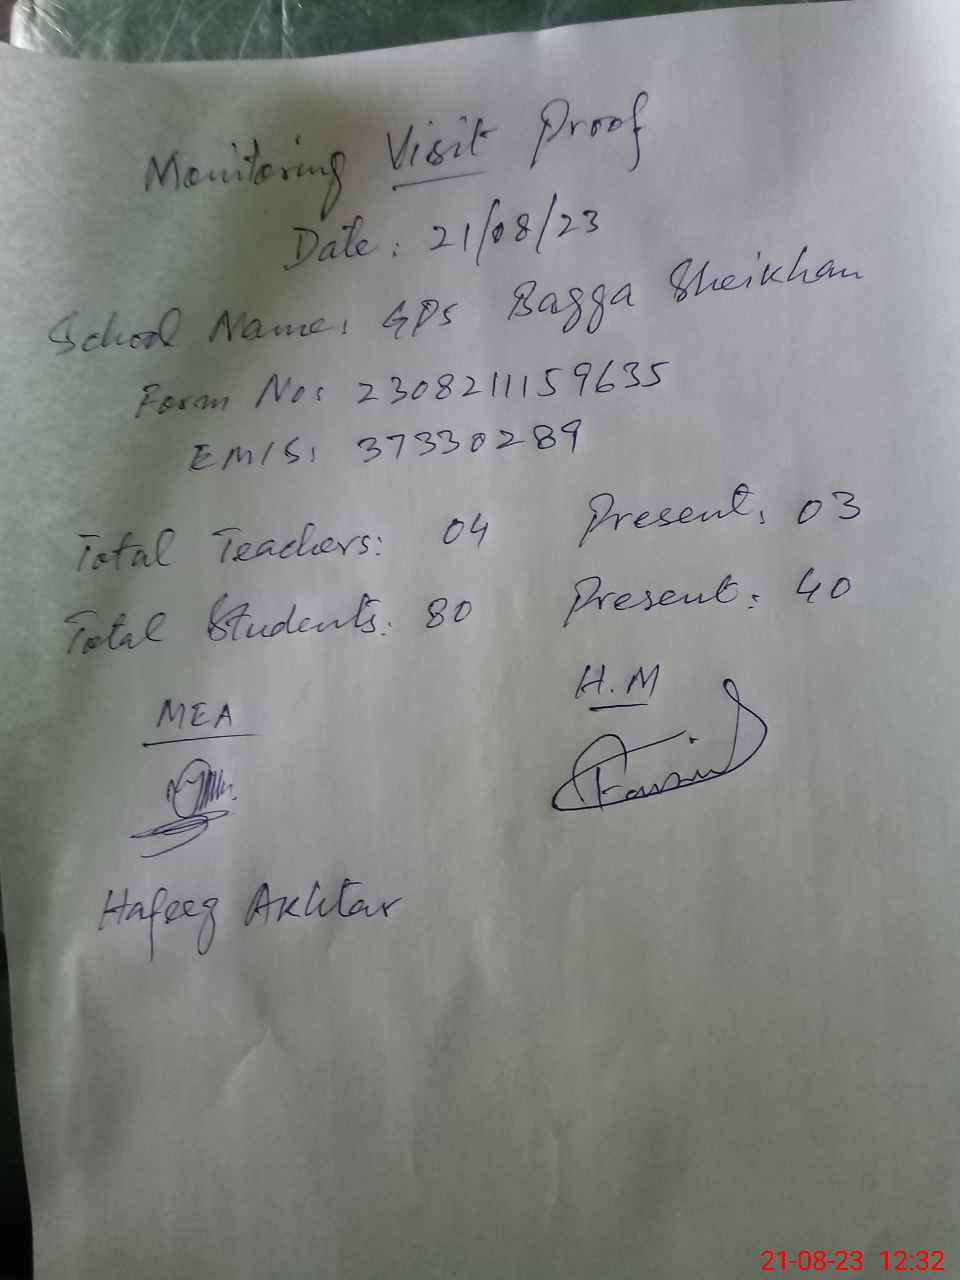 Monitoring Visit Proof
Date: 21/08/23
School Name: GPS Bagga Sheikhan
Form No: 230821115 9635
EMIS: 37330289
Total Teachers: 04 Present: 03
Total Students: 80 Present: 40
MEA H.M
Hafeez Akhtar
21-08-23 12:32